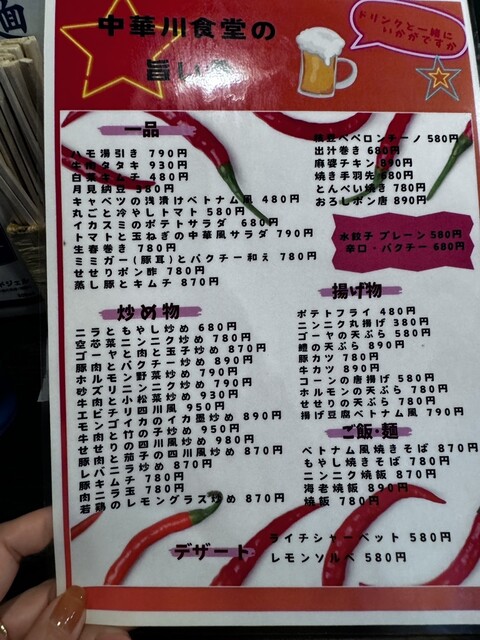 面
中華川食堂の
旨い
ドリンクと一緒に
いかがですか
一品
ハモ湯引き 790円
牛肉タタキ 930円
白菜キムチ 480円
月見納豆 380円
キャベツの浅漬けベトナム風 480円
丸ごと冷やしトマト 580円
イカスミのポテトサラダ 680円
トマトと玉ねぎの中華風サラダ 790円
生春巻き 780円
ミミガー(豚耳)とパクチー和え 780円
せせりポン酢 780円
蒸し豚とキムチ 870円
ペペロンチーノ 580円
出汁巻き 680円
麻婆チキン 890円
焼き手羽先 680円
とんぺい焼き 780円
おろしポン唐 890円
水餃子 プレーン 580円
辛口・パクチー 680円
炒め物
ニラともやし炒め 680円
空芯菜ニンニク炒め 780円
ゴーヤと肉と玉子炒め 870円
豚肉とパクチー炒め 890円
ホルモン野菜炒め 790円
砂ズリニンニク炒め 790円
牛肉と小松菜炒め 930円
エビチリ四川風 950円
モンゴイカのイカ墨炒め 890円
牛肉と竹の子炒め 950円
せせりの四川風炒め 980円
豚肉と茄子の四川風炒め 870円
レバニラ炒め 870円
豚キムチ 780円
肉ニラ玉 780円
若鶏のレモングラス炒め 870円
揚げ物
ポテトフライ 480円
ニンニク丸揚げ 380円
ゴーヤの天ぷら 580円
鱧の天ぷら 890円
豚カツ 780円
牛カツ 890円
コーンの唐揚げ 580円
ホルモンの天ぷら 780円
せせりの天ぷら 780円
揚げ豆腐ベトナム風 790円
ご飯・麺
ベトナム風焼きそば 870円
もやし焼きそば 780円
ニンニク焼飯 870円
海老焼飯 890円
焼飯 780円
デザート
ライチシャーベット 580円
レモンソルベ 580円